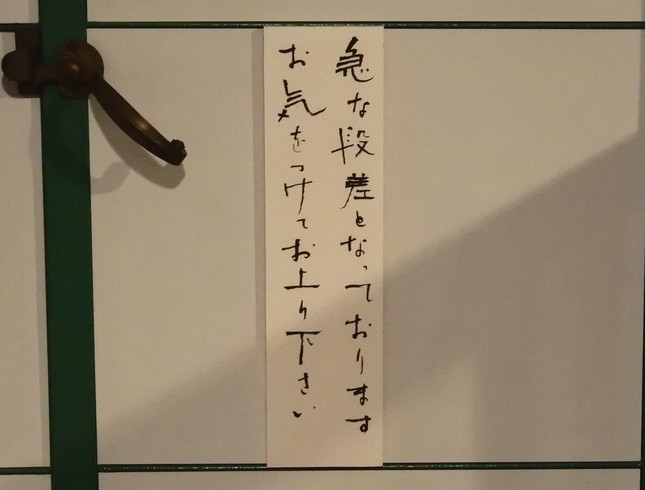 急な段差となっております
お気をつけてお上り下さい